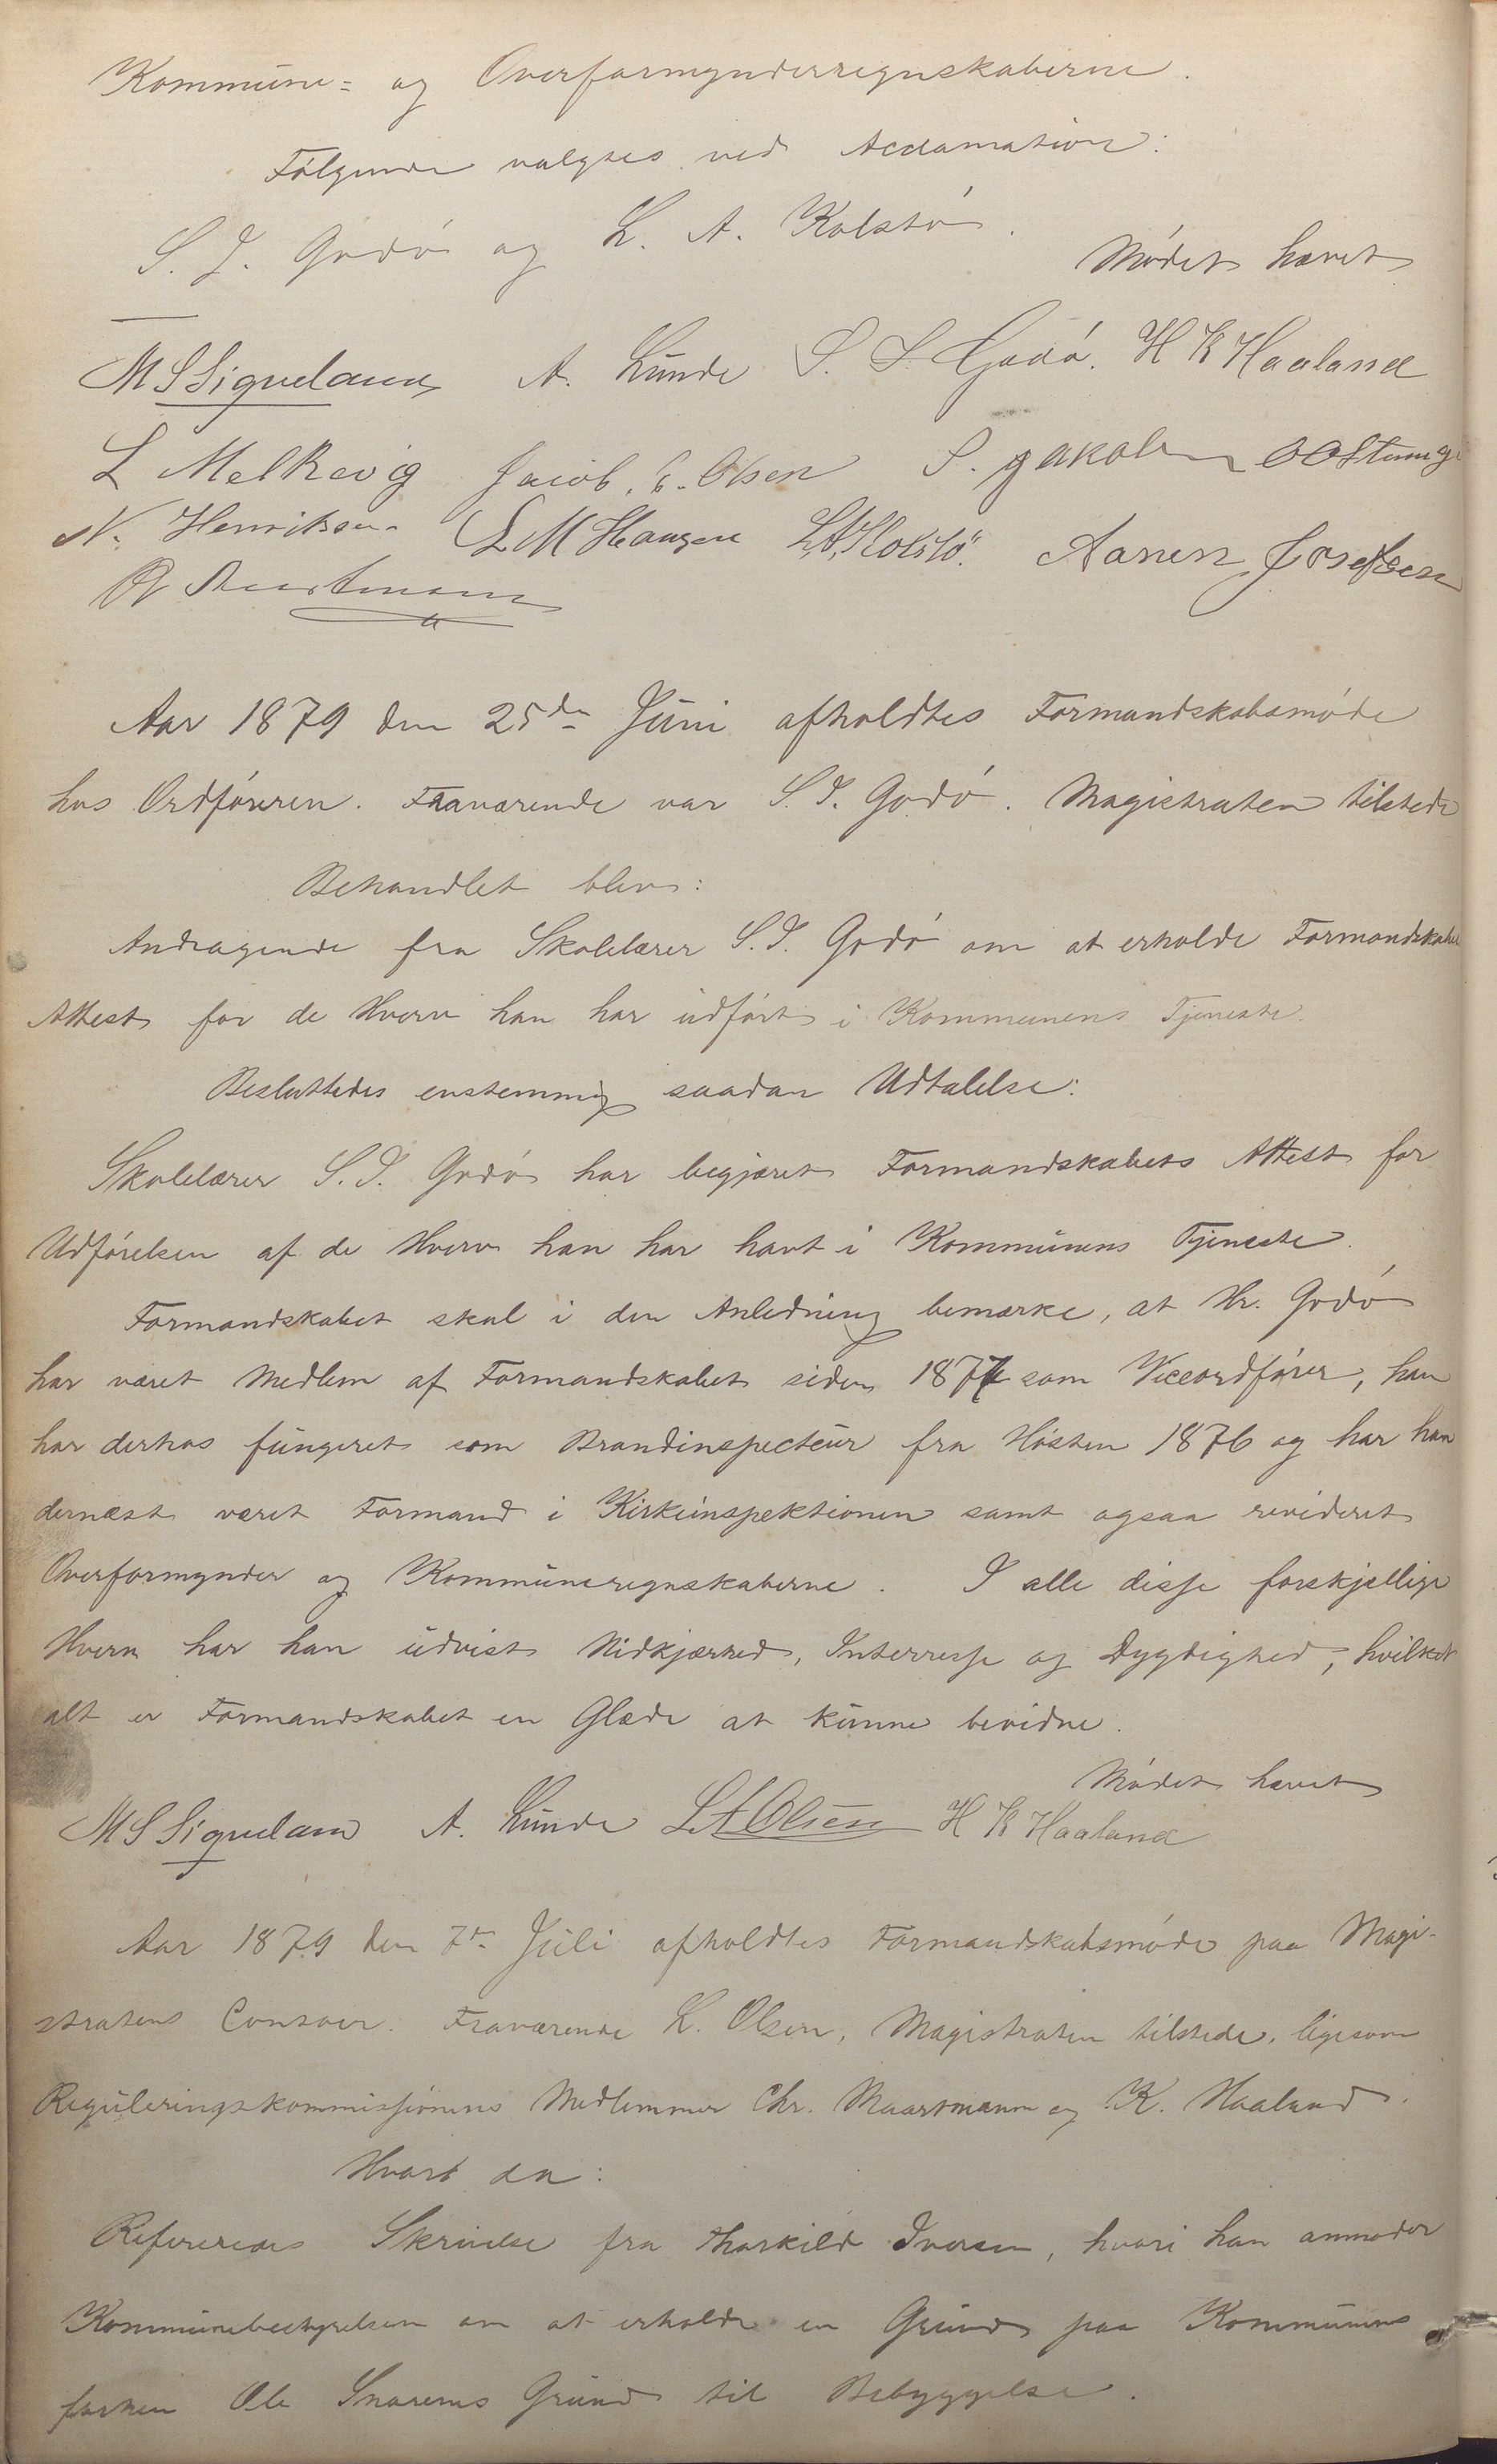 Kommune- og Overformynderregnskaberne.
Følgende valgtes ved Acclamation:
S. J. Godø og L. A. Kolstø.
Mødet hævet
M S Siqveland A. Lunde S. J. Godø. H K Haaland
L Melkevig Jacob. E. Olsen S. Jakobsen
N. Henriksen L M Haugen L. A. Kolstø. Aanen Josefsen
Aar 1879 den 25de Juni afholdtes Formandskabsmøde
hos Ordføreren. Fraværende var S. J. Godø. Magistraten tilstede
Behandlet blev:
Andragende fra Skolelærer S. J. Godø om at erholde Formandskabets
Attest for de Hverv han har udført i Kommunens Tjeneste.
Besluttedes enstemmig saadan Udtalelse:
Skolelærer S. J. Godø har begjæret Formandskabets Attest for
Udførelsen af de Hverv han har havt i Kommunens Tjeneste.
Formandskabet skal i den Anledning bemærke, at Hr. Godø
har været Medlem af Formandskabet siden som Viceordfører, han
har derhos fungeret som Brandinspecteur fra Høsten 1876 og har han
dernæst været Formand i Kirkeinspektionen samt ogsaa revideret
Overformynder og Kommuneregnskaberne. I alle disse forskjellige
Hverv har han udvist Nidkjærhed, Interresse og Dygdighed, hvilket
alt er Formandskabet en Glæde at kunne bevidne.
Mødet hævet
M S Siqveland A. Lunde L A Olsen H K Haaland
Aar 1879 den 7de Juli afholdtes Formandskabsmøde paa Magi-
stratens Contoir. Fraværende L. Olsen, Magistraten tilstede, ligesom
Reguleringskommissionens Medlemmer Chr. Maartmann og K. Haaland.
Hvort da:
Refereredes Skrivelse fra Thorkild Iversen, hvori han anmoder
Kommunebestyrelsen om at erholde en Grund paa Kommunens
forhen Ole Snorems Grund til Bebyggelse.